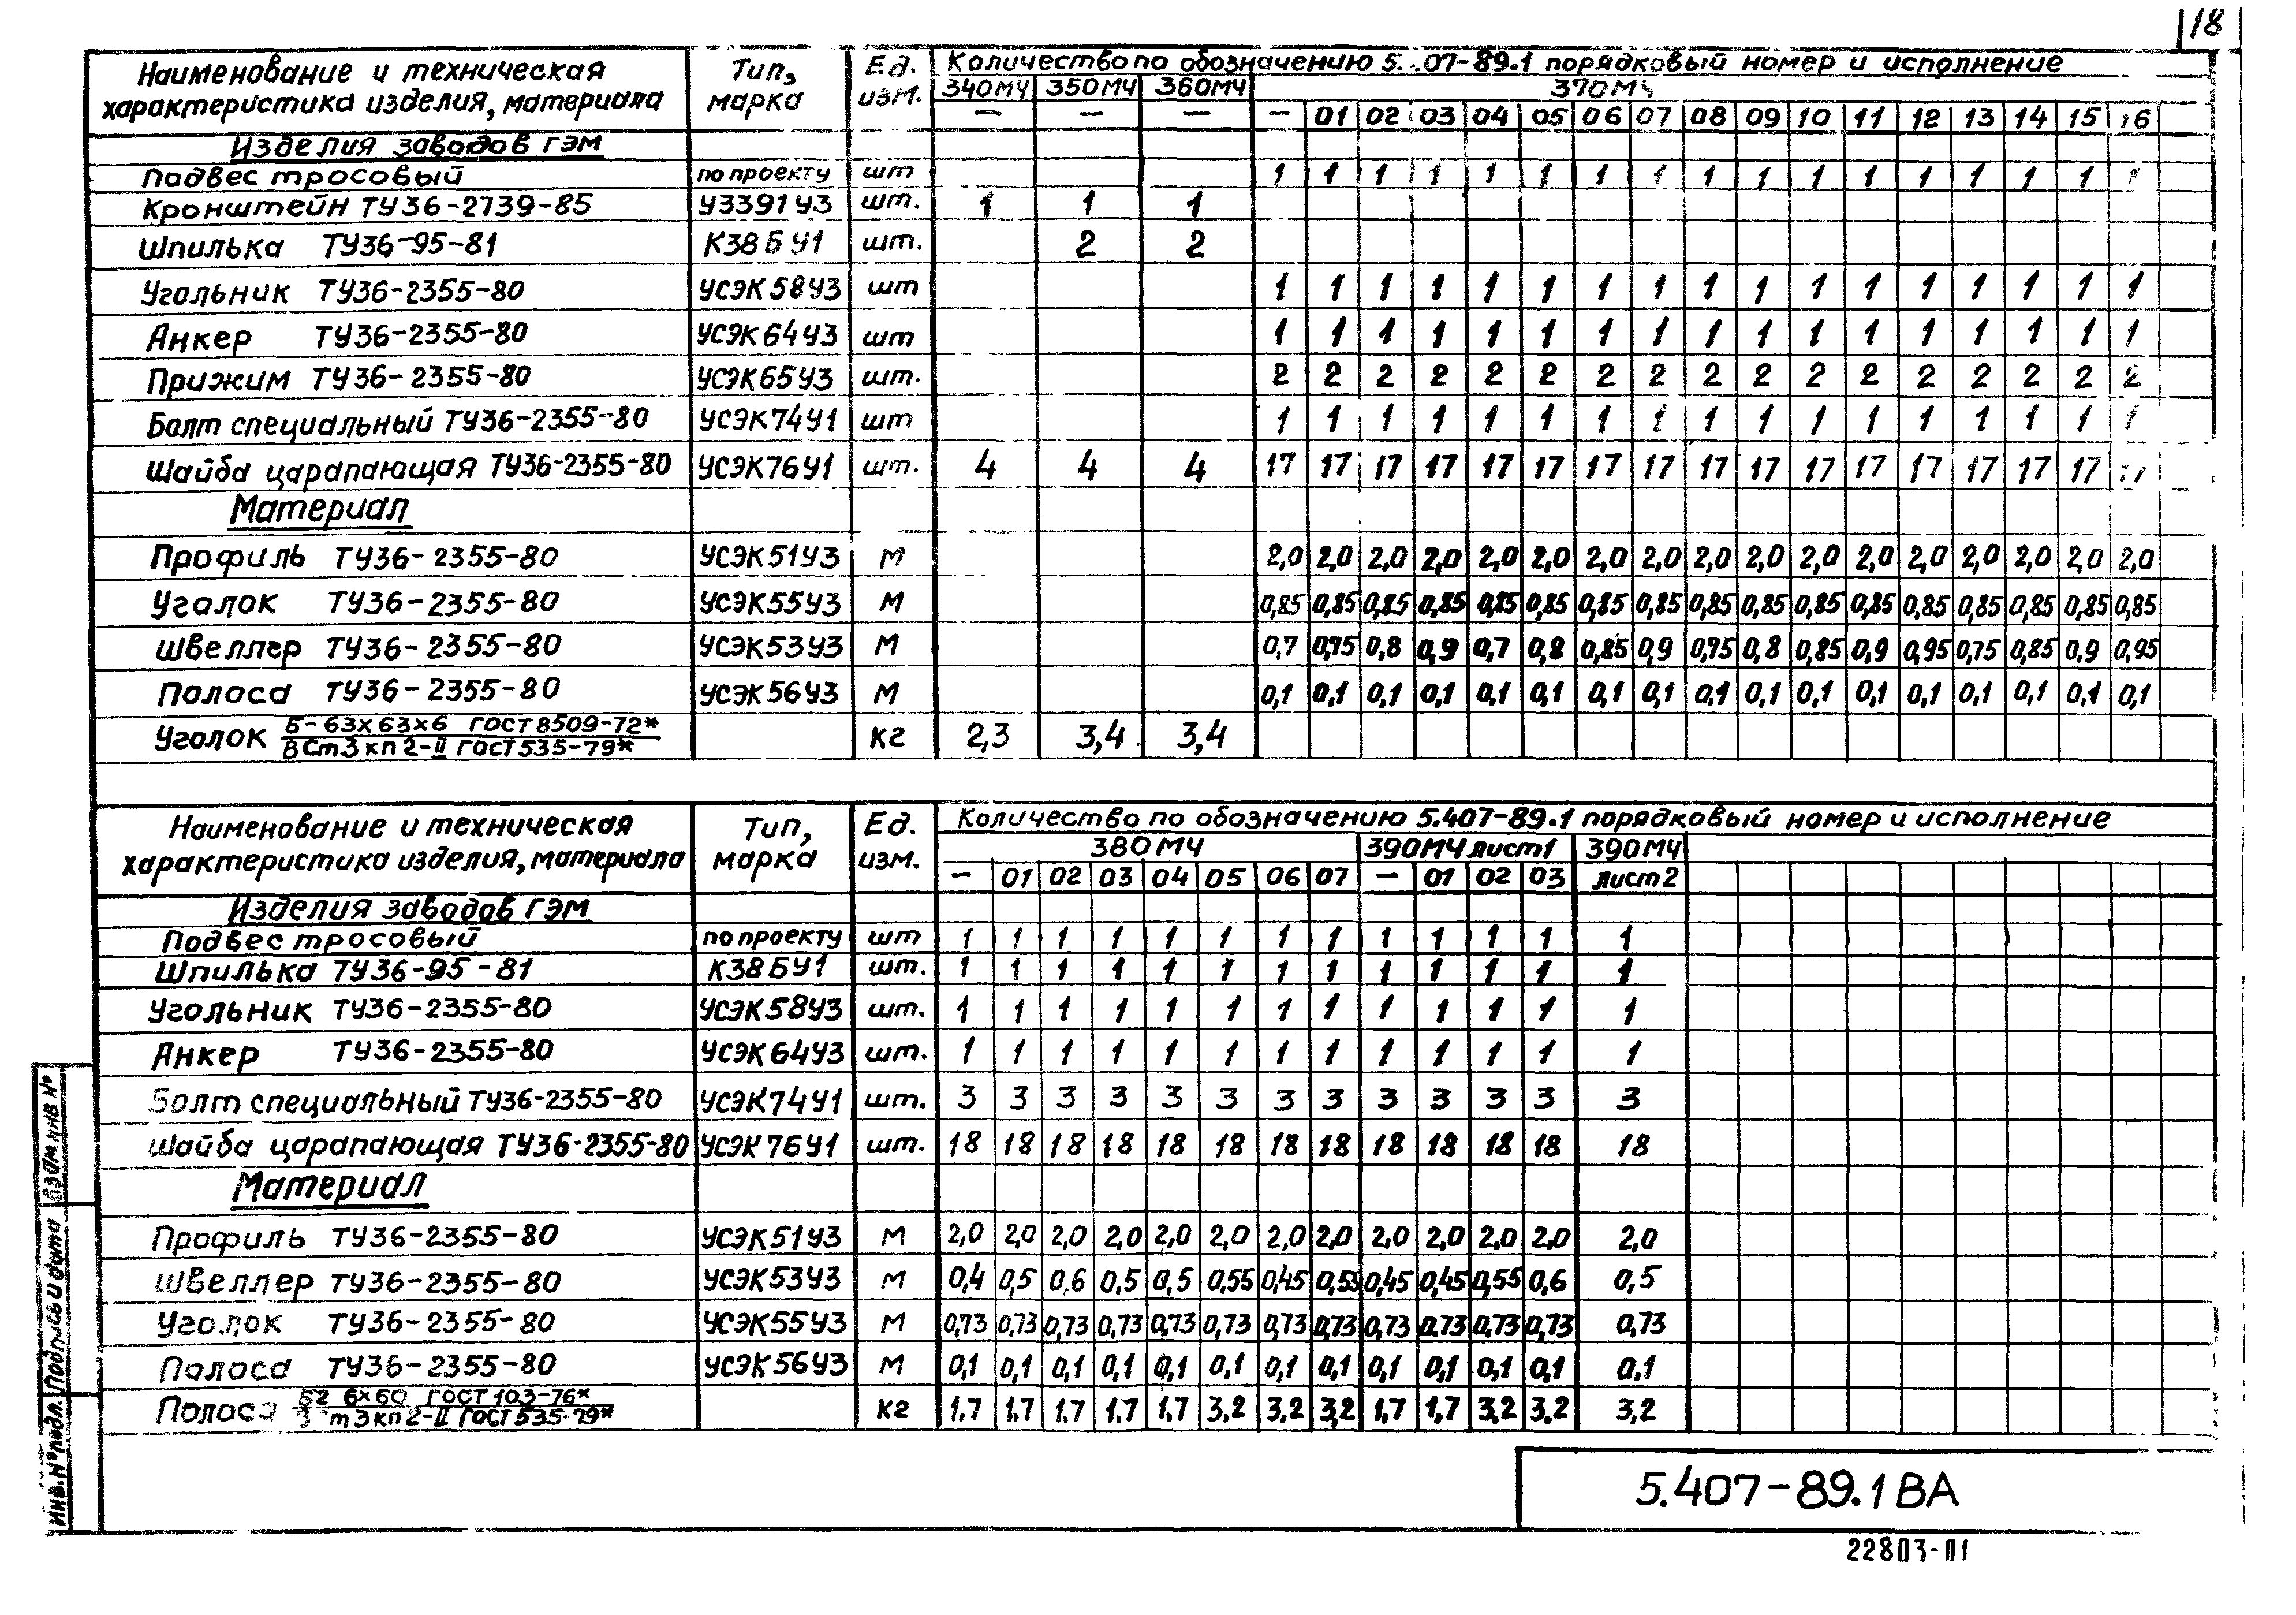 18
Наименование и техническая характеристика изделия, материала Тип, марка Ед. изм. Количество по обозначению 5. 07-89.1 порядковый номер и исполнение
340МЧ 350МЧ 360МЧ 370МЧ
— — — — 01 02 03 04 05 06 07 08 09 10 11 12 13 14 15 16
Изделия заводов ГЭМ
Подвес тросовый по проекту шт 1 1 1 1 1 1 1 1 1 1 1 1 1 1 1 1 1
Кронштейн ТУ36-2739-85 У3391У3 шт. 1 1 1
Шпилька ТУ36-95-81 К38БУ1 шт. 2 2
Угольник ТУ36-2355-80 УСЭК58У3 шт 1 1 1 1 1 1 1 1 1 1 1 1 1 1 1 1 1
Анкер ТУ36-2355-80 УСЭК64У3 шт 1 1 1 1 1 1 1 1 1 1 1 1 1 1 1 1 1
Прижим ТУ36-2355-80 УСЭК65У3 шт. 2 2 2 2 2 2 2 2 2 2 2 2 2 2 2 2 2
Болт специальный ТУ36-2355-80 УСЭК74У1 шт 1 1 1 1 1 1 1 1 1 1 1 1 1 1 1 1 1
Шайба царапающая ТУ36-2355-80 УСЭК76У1 шт. 4 4 4 17 17 17 17 17 17 17 17 17 17 17 17 17 17 17 17 17
Материал
Профиль ТУ36-2355-80 УСЭК51У3 м 2,0 2,0 2,0 2,0 2,0 2,0 2,0 2,0 2,0 2,0 2,0 2,0 2,0 2,0 2,0 2,0 2,0
Уголок ТУ36-2355-80 УСЭК55У3 м 0,85 0,85 0,85 0,85 0,85 0,85 0,85 0,85 0,85 0,85 0,85 0,85 0,85 0,85 0,85 0,85 0,85
Швеллер ТУ36-2355-80 УСЭК53У3 м 0,7 0,75 0,8 0,9 0,7 0,8 0,85 0,9 0,75 0,8 0,85 0,9 0,95 0,75 0,85 0,9 0,95
Полоса ТУ36-2355-80 УСЭК56У3 м 0,1 0,1 0,1 0,1 0,1 0,1 0,1 0,1 0,1 0,1 0,1 0,1 0,1 0,1 0,1 0,1 0,1
Уголок Б-63х63х6 ГОСТ 8509-72* кг 2,3 3,4 3,4
ВСт3кп2-II ГОСТ535-79*
Наименование и техническая характеристика изделия, материала Тип, марка Ед. изм. Количество по обозначению 5.407-89.1 порядковый номер и исполнение
380МЧ 390МЧ лист1 390МЧ лист2
— 01 02 03 04 05 06 07 — 01 02 03
Изделия заводов ГЭМ
Подвес тросовый по проекту шт 1 1 1 1 1 1 1 1 1 1 1 1 1
Шпилька ТУ36-95-81 К38БУ1 шт. 1 1 1 1 1 1 1 1 1 1 1 1 1
Угольник ТУ36-2355-80 УСЭК58У3 шт. 1 1 1 1 1 1 1 1 1 1 1 1 1
Анкер ТУ36-2355-80 УСЭК64У3 шт. 1 1 1 1 1 1 1 1 1 1 1 1 1
Болт специальный ТУ36-2355-80 УСЭК74У1 шт. 3 3 3 3 3 3 3 3 3 3 3 3 3
Шайба царапающая ТУ36-2355-80 УСЭК76У1 шт. 18 18 18 18 18 18 18 18 18 18 18 18 18
Материал
Профиль ТУ36-2355-80 УСЭК51У3 м 2,0 2,0 2,0 2,0 2,0 2,0 2,0 2,0 2,0 2,0 2,0 2,0 2,0
Швеллер ТУ36-2355-80 УСЭК53У3 м 0,4 0,5 0,6 0,5 0,5 0,55 0,45 0,55 0,45 0,45 0,55 0,6 0,5
Уголок ТУ36-2355-80 УСЭК55У3 м 0,73 0,73 0,73 0,73 0,73 0,73 0,73 0,73 0,73 0,73 0,73 0,73 0,73
Полоса ТУ36-2355-80 УСЭК56У3 м 0,1 0,1 0,1 0,1 0,1 0,1 0,1 0,1 0,1 0,1 0,1 0,1 0,1
Полоса Б2 6х60 ГОСТ 103-76* кг 1,7 1,7 1,7 1,7 1,7 3,2 3,2 3,2 1,7 1,7 3,2 3,2 3,2
т3кп2-II ГОСТ535-79*
Инв. № подл. Подпись и дата Взам инв №
5.407-89.1ВА
22803-01